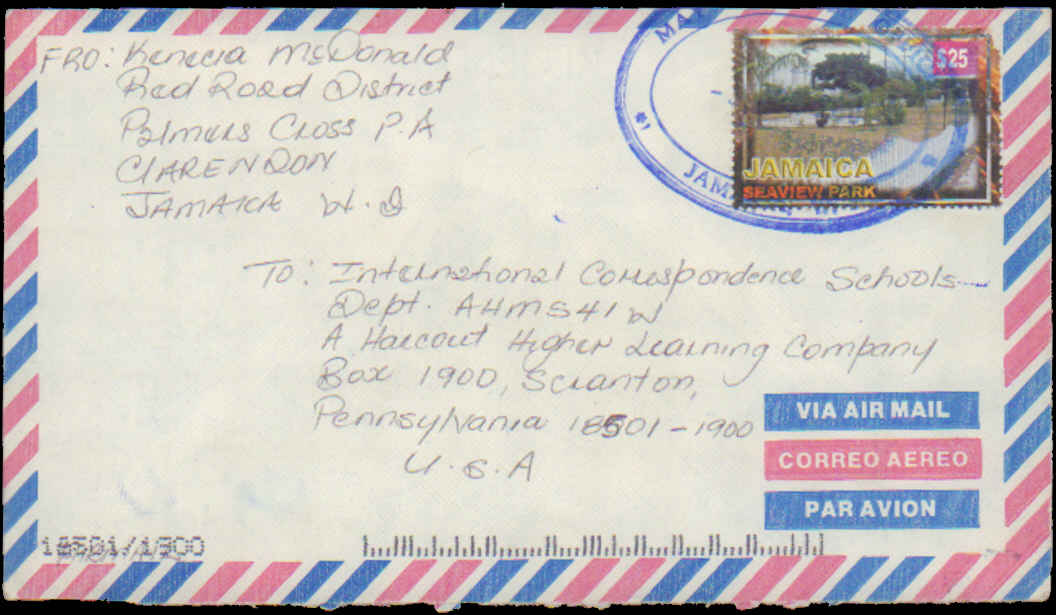 FRO: Kenecia McDonald
Red Road District
Palmers Cross P.A
CLARENDON
JAMAICA W.I
$25
JAMAICA
SEAVIEW PARK
MAY
JAMAICA
TO: International Correspondence Schools
Dept. AHMS41W
A Harcourt Higher Learning Company
Box 1900, Scranton,
Pennsylvania 18501-1900
U.S.A
VIA AIR MAIL
CORREO AEREO
PAR AVION
18501/1900